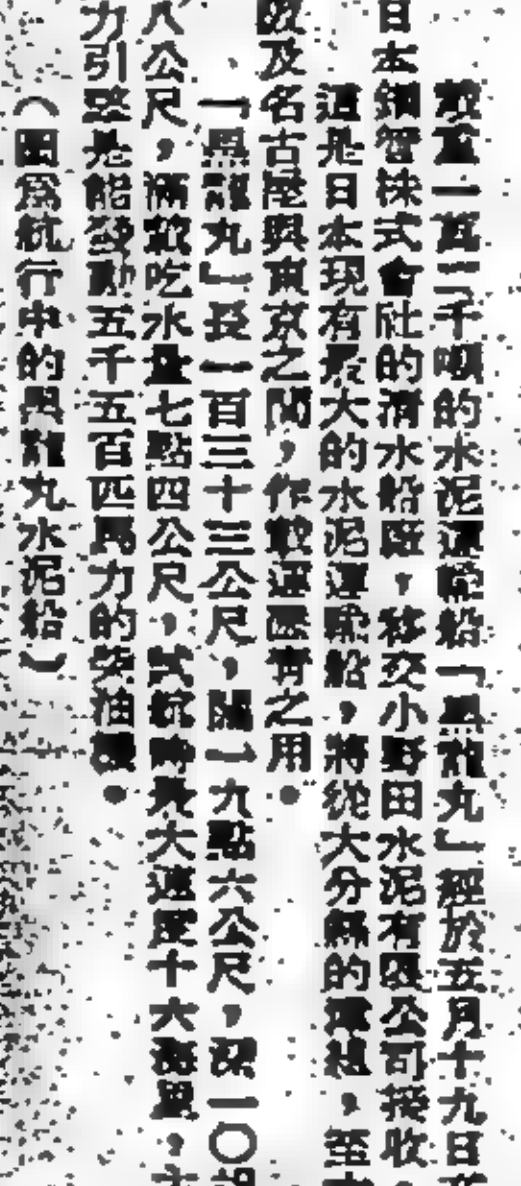 載重一萬二千噸的水泥運輸船「黑龍丸」經於五月十九日在
日本鋼管株式會社的清水船廠，移交小野田水泥有限公司接收。
這是日本現有最大的水泥運輸船，將從大分縣的津組，至大
阪及名古屋與東京之間，作散運水泥之用。
「黑龍丸」長一百三十三公尺，闊一九點六公尺，深一〇點
八公尺，滿載吃水量七點四公尺，試航時最大速度十六海里，主
力引擎是能發動五千五百匹馬力的柴油機。
（圖為航行中的黑龍丸水泥船）